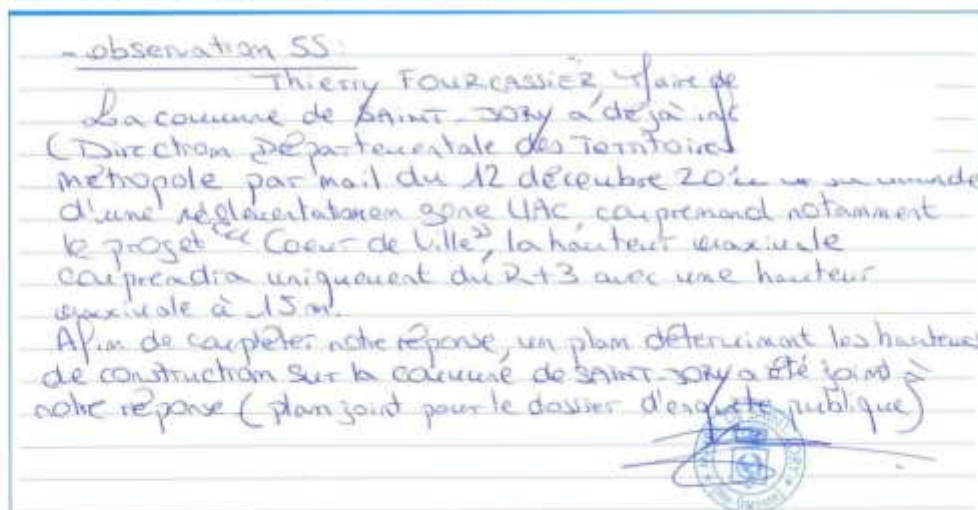 - observation 55:
Thierry FOURCASSIER, Maire de
La commune de SAINT-JORY a déjà inf
(Direction Départementale des Territoires
métropole par mail du 12 décembre
d'une réglementation en zone UAC, comprenant notamment
le projet "Coeur de Ville", la hauteur maximale
comprendra uniquement du R+3 avec une hauteur
maximale à 15 m.
Afin de compléter notre réponse, un plan déterminant les hauteurs
de construction sur la commune de SAINT-JORY a été joint à
notre réponse (plan joint pour le dossier d'enquête publique)